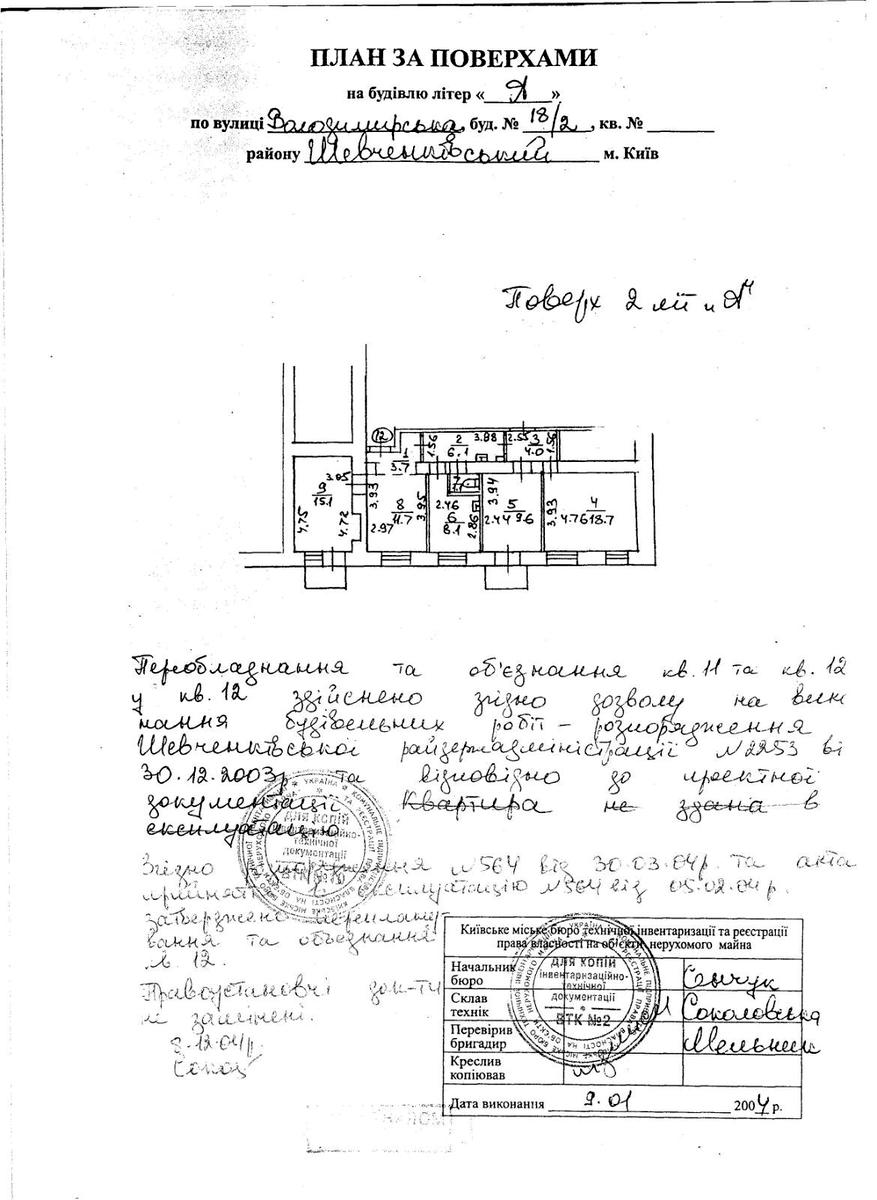 ПЛАН ЗА ПОВЕРХАМИ
на будівлю літер « А »
по вулиці Володимирська, буд. № 18/2, кв. №
району Шевченківський м. Київ
Поверх 2 літ
12
1
3.7
1.56
2
6.1
3.88
2.55
3
4.0
1.56
9
15.1
3.05
4.75
4.72
3.93
8
11.7
3.95
2.97
7
2.46
6
8.1
2.86
3.94
5
2.44
9.6
3.93
4
4.76
18.7
Переобладнання та об'єднання кв. 11 та кв. 12
у кв. 12 здійснено згідно дозволу на вик
нання будівельних робіт – розпорядження
Шевченківської райдержадміністрації №2253 ві
30.12.2003р. та відповідно до проектної
документації Квартира не здана в
експлуатацію
Згідно розпорядження №564 від 30.03.04р. та акта
прийнят експлуатацію №564 від 05.02.04р.
затверджено переплану
вання та объєднання
кв. 12.
Правоустановчі док-ти
не замінені.
8.12.04р.
ДЛЯ КОПІЙ
інвентаризаційно-
технічної
документації
Київське міське бюро технічної інвентаризації та реєстрації
права власності на об'єкти нерухомого майна
Начальник
бюро
Склав
технік
Соколовська
Перевірив
бригадир
Мельник
Креслив
копіював
Дата виконання 9.01 2004 р.
ДЛЯ КОПІЙ
інвентаризаційно-
технічної
документації
ВТК №2